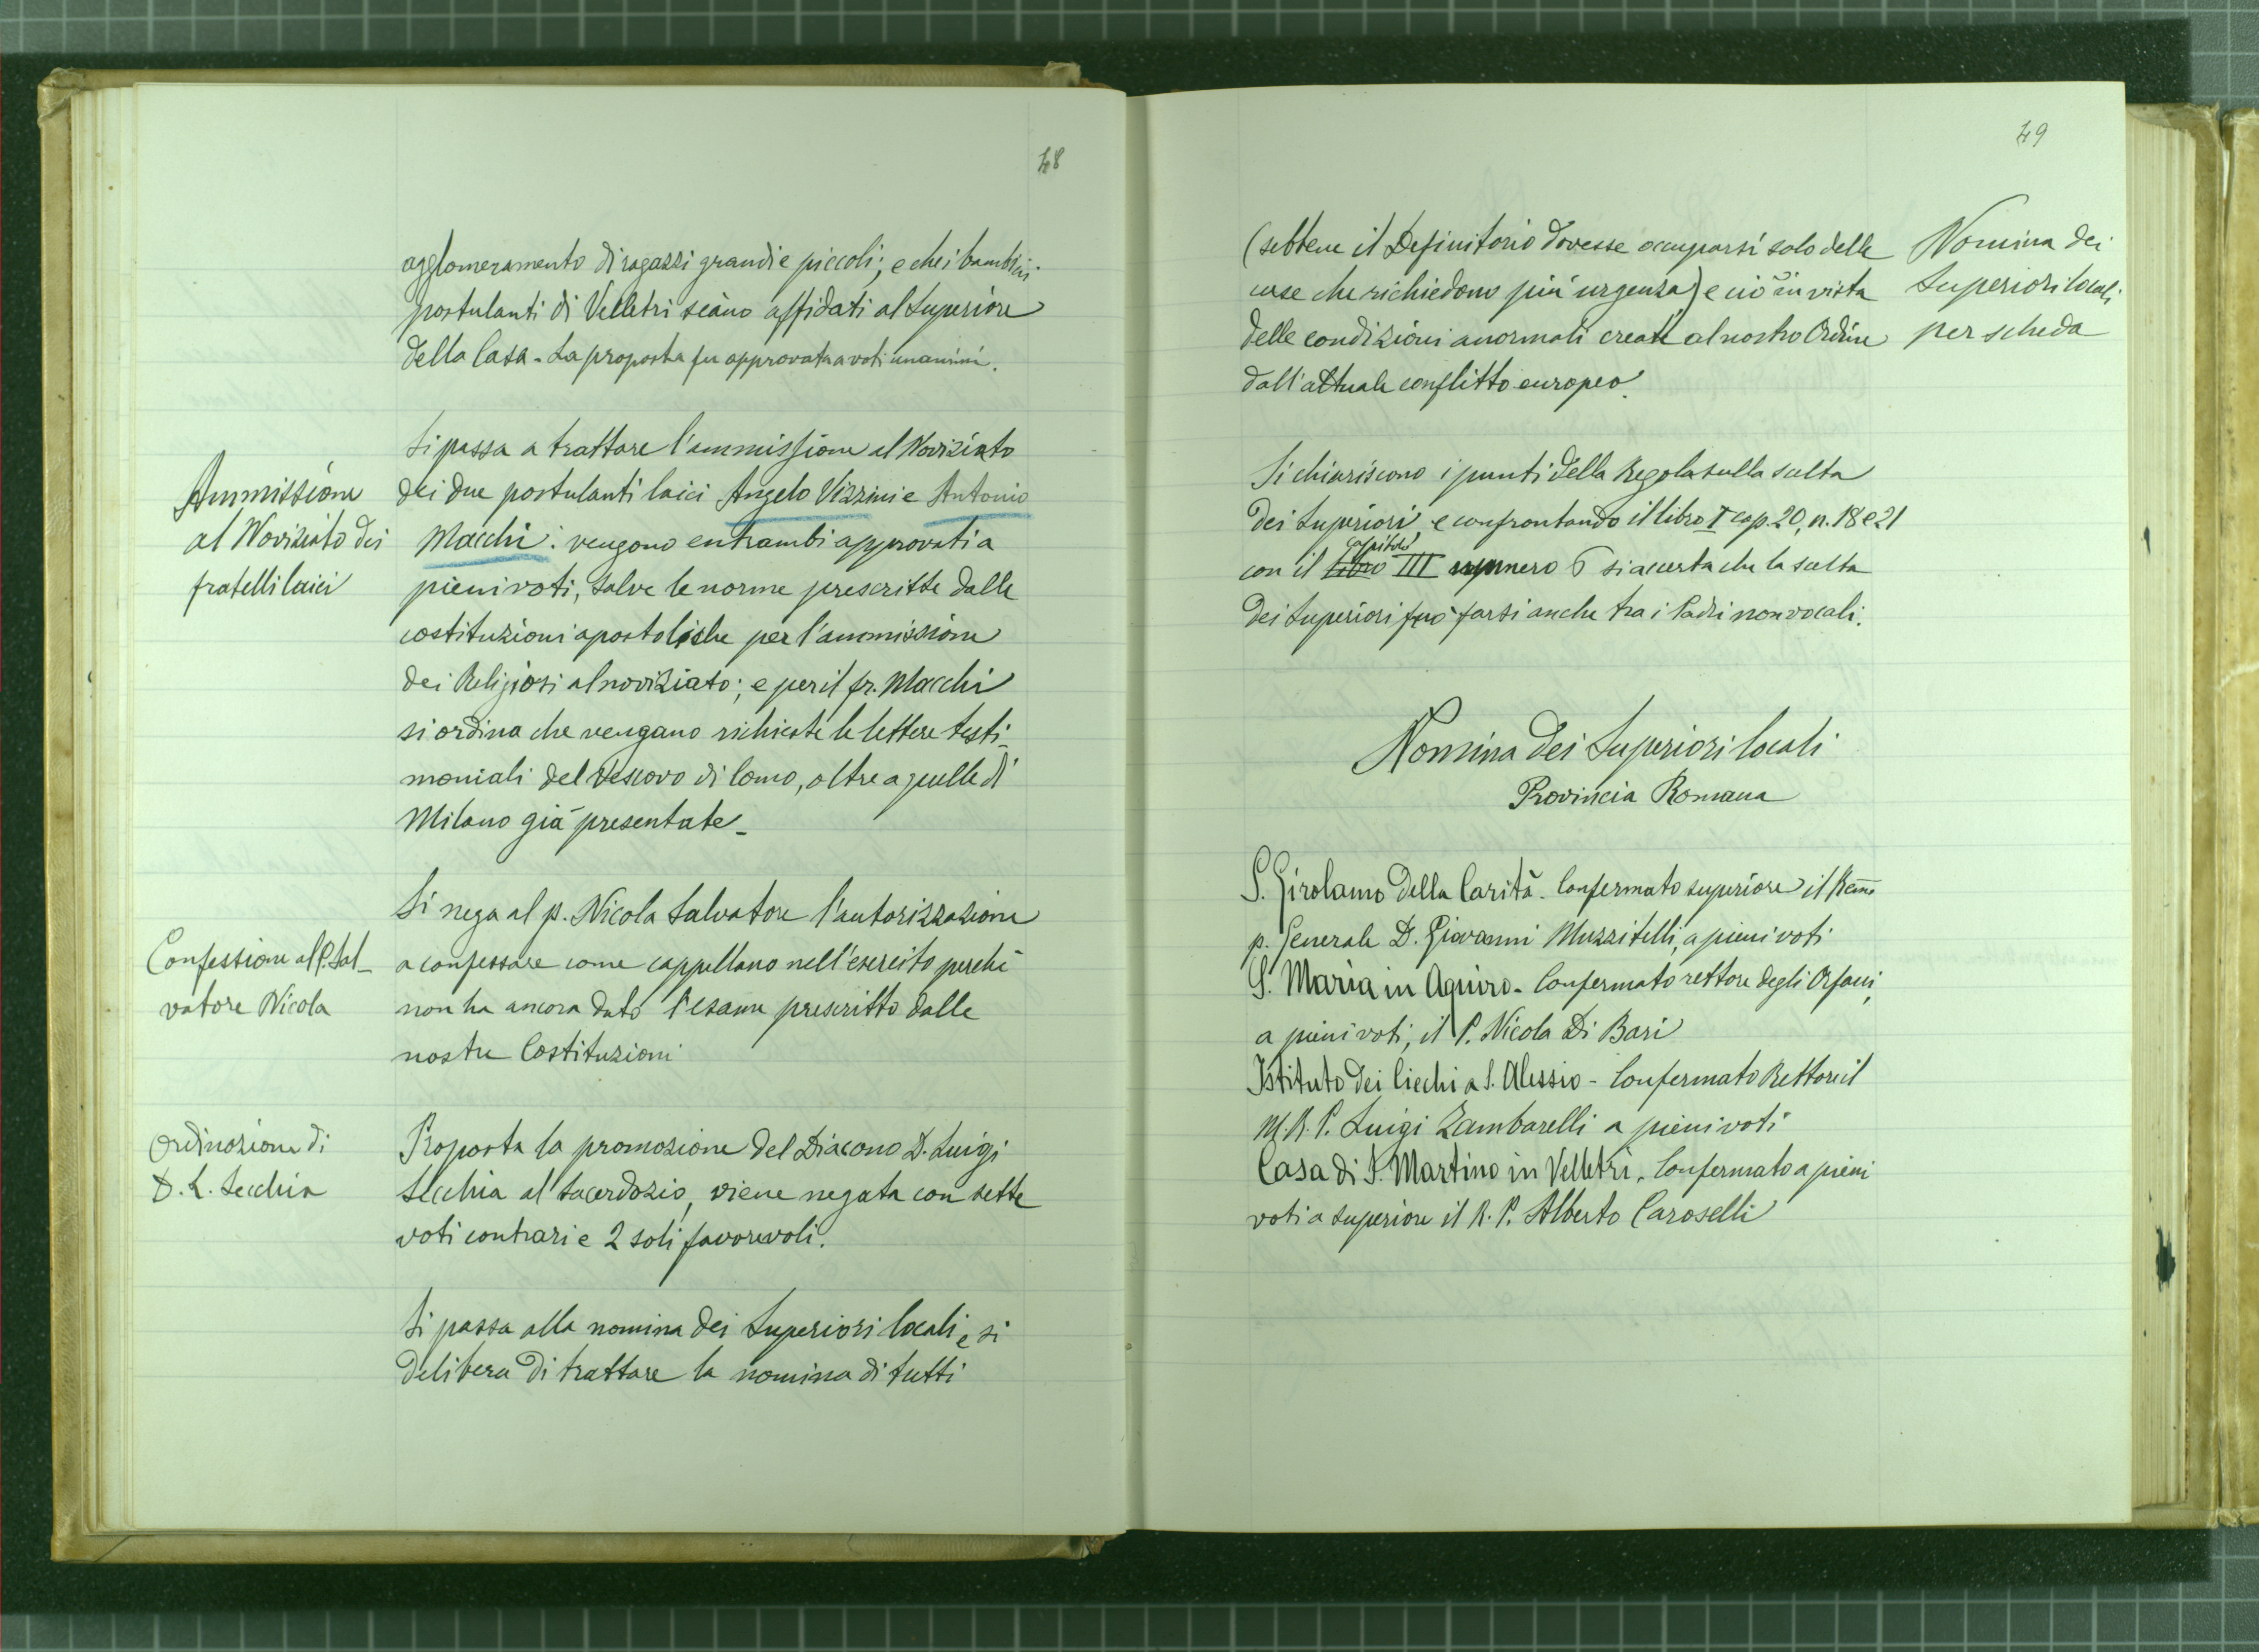 48
agglomeramento di ragazzi grandi e piccoli; e che i bambini
postulanti di Velletri siano affidati al Superiore
della Casa - La proposta fu approvata a voti unanimi.
Ammissione
al Noviziato dei
fratelli laici
Si passa a trattare l'ammissione al Noviziato
dei due postulanti laici Angelo Vizzini e Antonio
Macchi: vengono entrambi approvati a
pieni voti, salve le norme prescritte dalle
costituzioni apostoliche per l'ammissione
dei Religiosi al noviziato; e per il fr. Macchi
si ordina che vengano richieste le lettere testi-
moniali del Vescovo di Como, oltre a quelle di
Milano già presentate -
Confessione al P. Sal-
vatore Nicola
Si nega al p. Nicola Salvatore l'autorizzazione
a confessare come cappellano nell'esercito perchè
non ha ancora dato l'esame prescritto dalle
nostre Costituzioni
Ordinazione di
D. L. Secchia
Proposta la promozione del Diacono D. Luigi
Secchia al Sacerdozio, viene negata con sette
voti contrari e 2 soli favorevoli.
Si passa alla nomina dei Superiori locali, e si
delibera di trattare la nomina di tutti
49
Nomina dei
Superiori locali
per scheda
(sebbene il Definitorio dovesse occuparsi solo delle
case che richiedono più urgenza) e ciò in vista
delle condizioni anormali create al nostro Ordine
dall'attuale conflitto europeo.
Si chiariscono i punti della Regola sulla scelta
dei Superiori e confrontando il libro I cap. 20, n. 18 e 21
con il libro capitolo III numero 6 si accerta che la scelta
dei Superiori può farsi anche tra i Padri non vocali.
Nomina dei Superiori locali
Provincia Romana
S. Girolamo della Carità - Confermato superiore il Rẽmo
p. Generale D. Giovanni Muzzitelli, a pieni voti
S. Maria in Aquiro - Confermato rettore degli Orfani,
a pieni voti, il P. Nicola Di Bari
Istituto dei Ciechi a S. Alessio - Confermato Rettore il
M. R. P. Luigi Zambarelli a pieni voti
Casa di S. Martino in Velletri - Confermato a pieni
voti a superiore il R. P. Alberto Caroselli